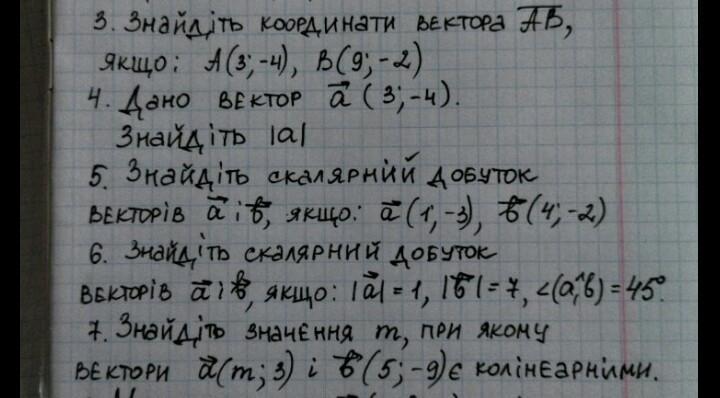 3. Знайдіть координати вектора AB,
якщо: A(3; -4), B(9; -2)
4. Дано вектор a (3; -4).
Знайдіть |a|
5. Знайдіть скалярний добуток
векторів a і b, якщо: a(1; -3), b(4; -2)
6. Знайдіть скалярний добуток
векторів a і b, якщо: |a| = 1, |b| = 7, ∠(a; b) = 45°.
7. Знайдіть значення m, при якому
вектори a(m; 3) і b(5; -9) є колінеарними.